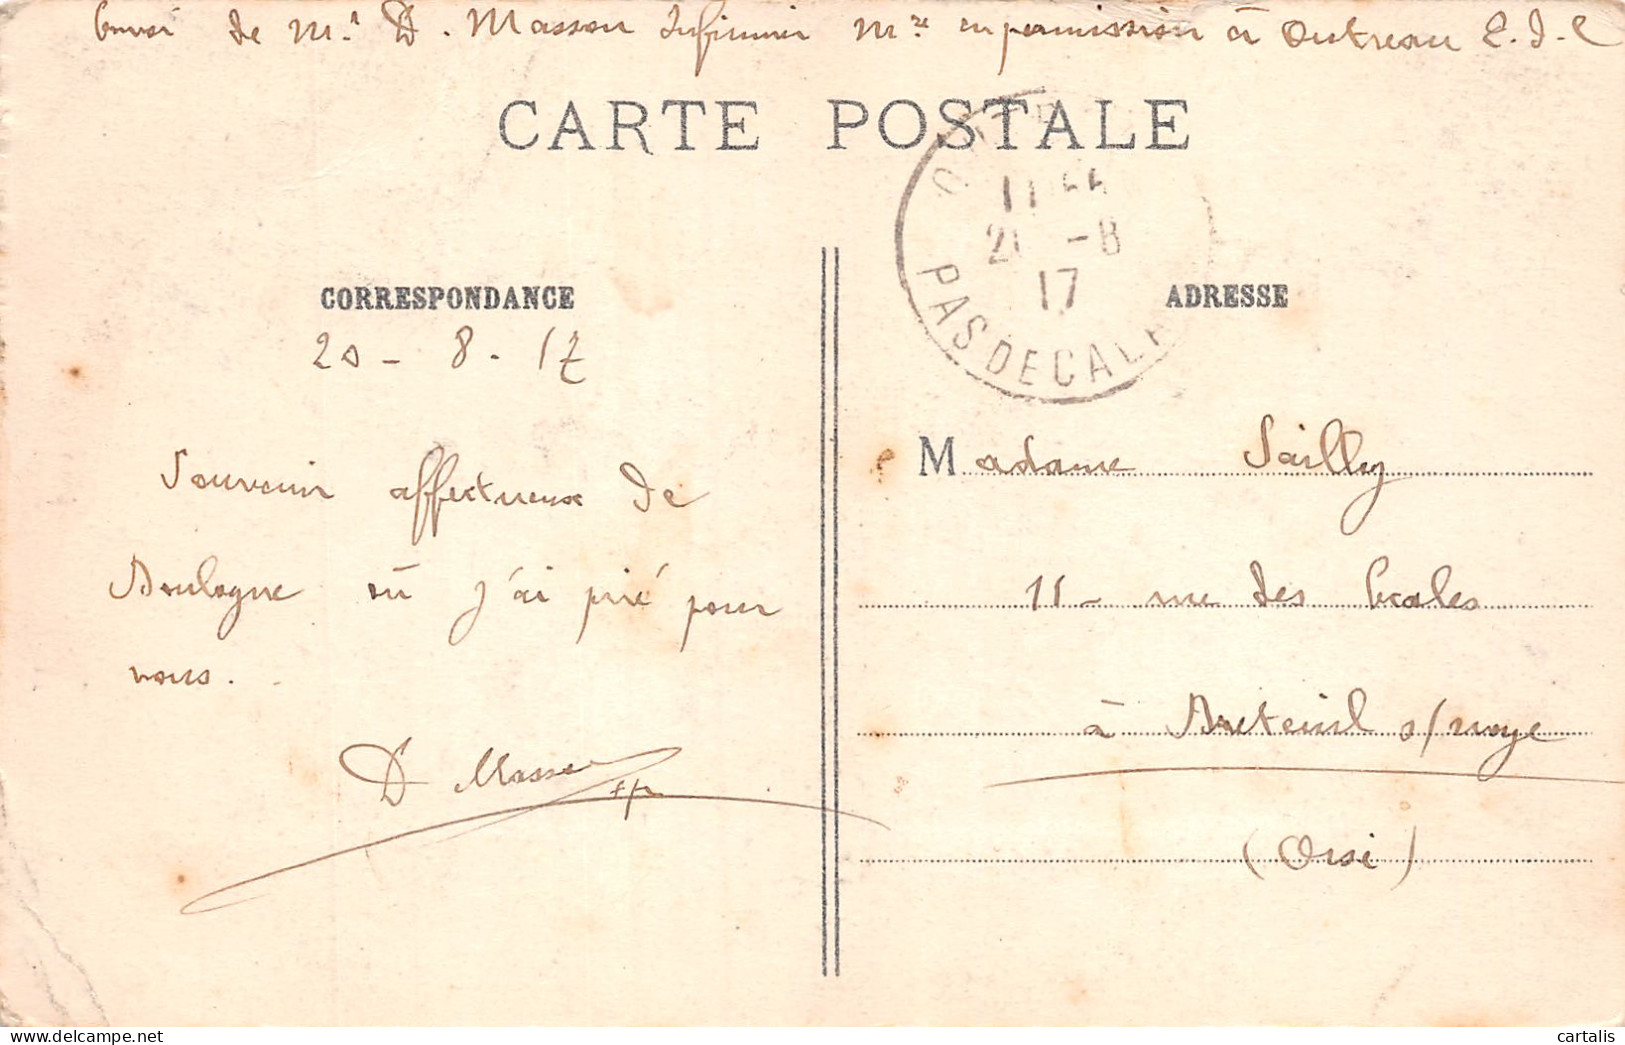 Envoi de Mr D. Masson Infirmier Mre en permission à Outreau P.d.C
CARTE POSTALE
11 55
21 -8
17
PAS DE CALAI
CORRESPONDANCE
20 - 8 . 17
Souvenir affectueux de
Boulogne où j'ai prié pour
vous.
D Masson
ADRESSE
Madame Sailly
11 - rue des Ecoles
à Breteuil s/noye
(Oise)
cartalis